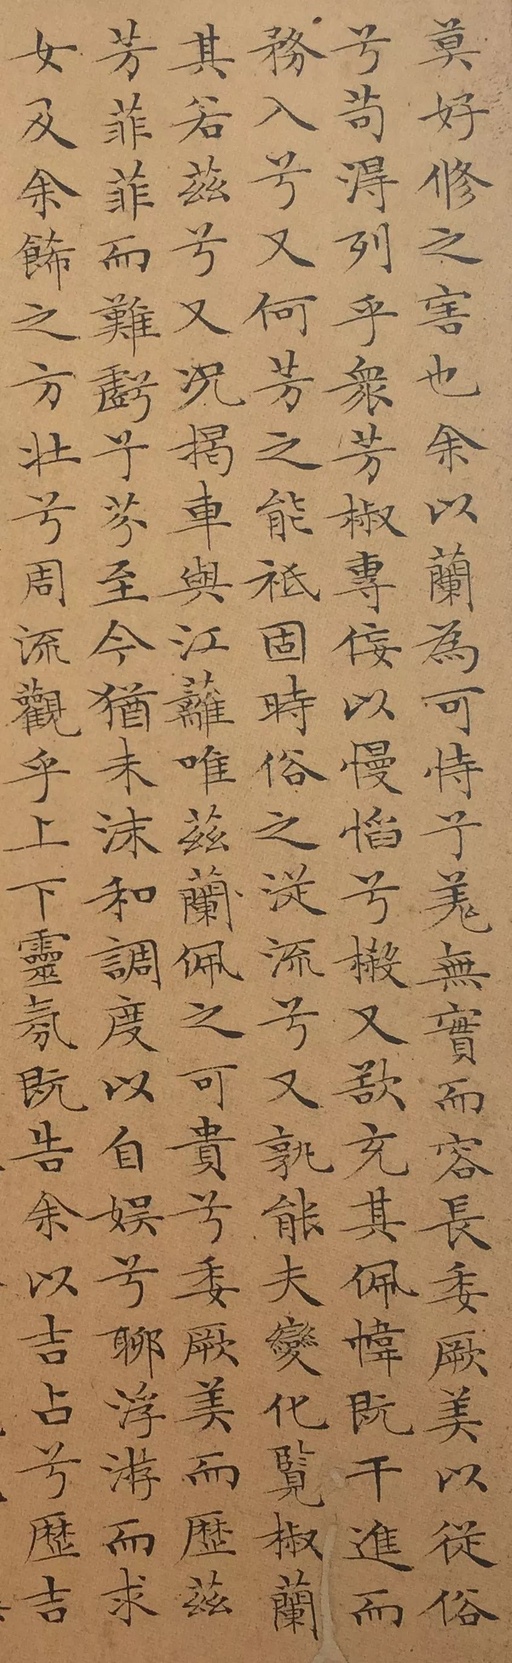 莫好修之害也余以蘭為可恃兮羌無實而容長委厥美以從俗
兮苟得列乎衆芳椒專佞以慢慆兮樧又欲充其佩幃既干進而
務入兮又何芳之能祗固時俗之從流兮又孰能夫變化覽椒蘭
其若茲兮又況揭車與江蘺唯茲蘭佩之可貴兮委厥美而歷茲
芳菲菲而難虧兮芬至今猶未沫和調度以自娛兮聊浮游而求
女及余飾之方壯兮周流觀乎上下靈氛既告余以吉占兮歷吉